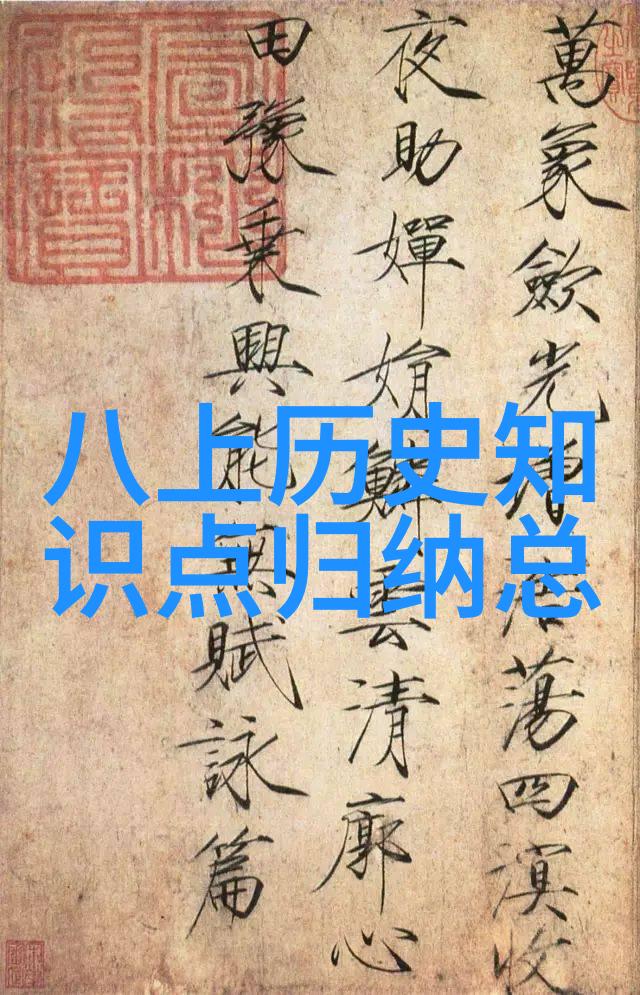 萬象歛光增浩蕩四溟收
夜助嬋娟鱗雲清廓心
田豫乘興能無賦詠篇
八上历史知
识点归纳总